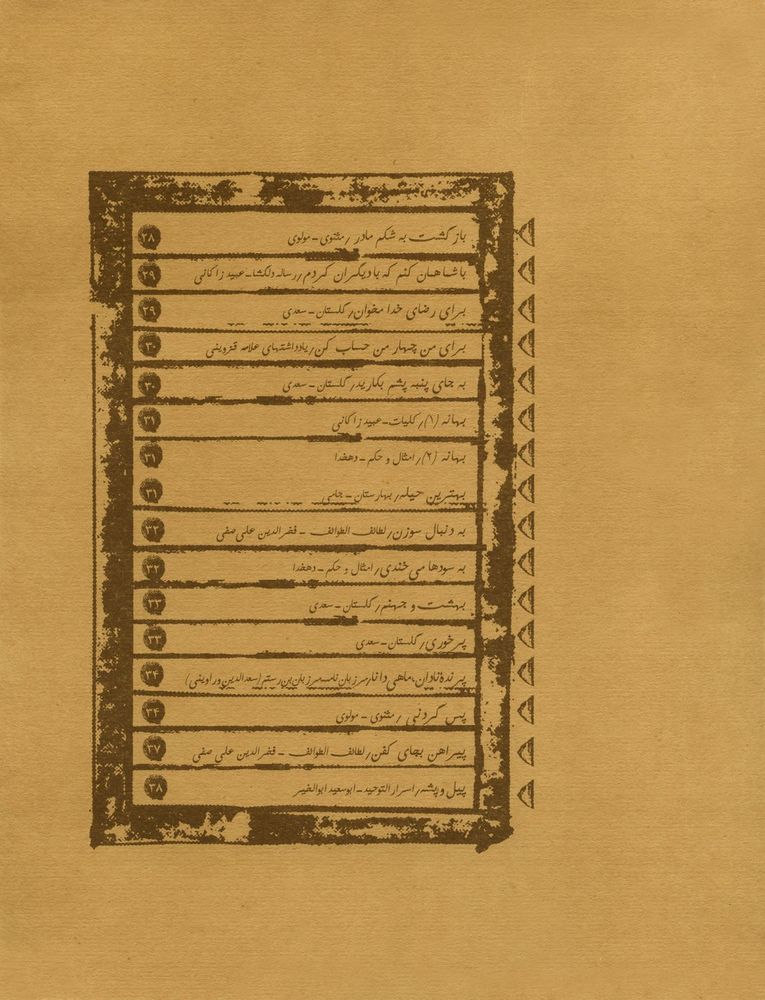 باز گشت به شکم مادر / مثنوی - مولوی ۲۸
با شما همان کنم که با دیگران کردم / رساله دلگشا - عبید زاکانی ۲۹
برای رضای خدا مخوان / گلستان - سعدی ۲۹
برای من چهار من حساب کن / یادداشتهای علامه قزوینی ۳۰
به جای پنبه پشم بکارید / گلستان - سعدی ۳۰
بهانه (۱) / کلیات - عبید زاکانی ۳۱
بهانه (۲) / امثال و حکم - دهخدا ۳۱
بهترین حیله / بهارستان - جامی ۳۱
به دنبال سوزن / لطائف الطوائف - فخرالدین علی صفی
به سودها می خندی / امثال و حکم - دهخدا
بهشت و جهنم / گلستان - سعدی
پر خوری / گلستان - سعدی
پرندهٔ نادان، ماهی دانا / مرزبان نامه مرزبان بن رستم (سعدالدین وراوینی) ۳۴
پس گردنی / مثنوی - مولوی ۳۴
پیراهن بجای کفن / لطائف الطوائف - فخرالدین علی صفی ۳۷
پیل و پشه / اسرار التوحید - ابوسعید ابوالخیر ۳۸